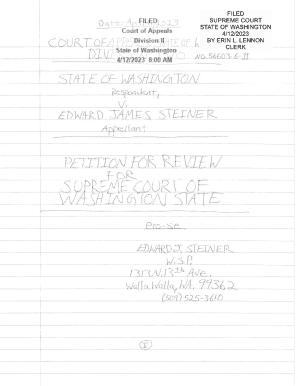 FILED
SUPREME COURT
STATE OF WASHINGTON
4/12/2023
BY ERIN L. LENNON
CLERK
FILED
Court of Appeals
Division II
State of Washington
4/12/2023 8:00 AM
COURT OF
NO. 56603-6-II
STATE OF WASHINGTON
Respondent,
V.
EDWARD JAMES STEINER
Appellant
PETITION FOR REVIEW
FOR
SUPREME COURT OF
WASHINGTON STATE
Pro-se
EDWARD J. STEINER
W.S.P.
1313 N. 13th Ave.
Walla Walla, WA. 99362
(509) 525-3610